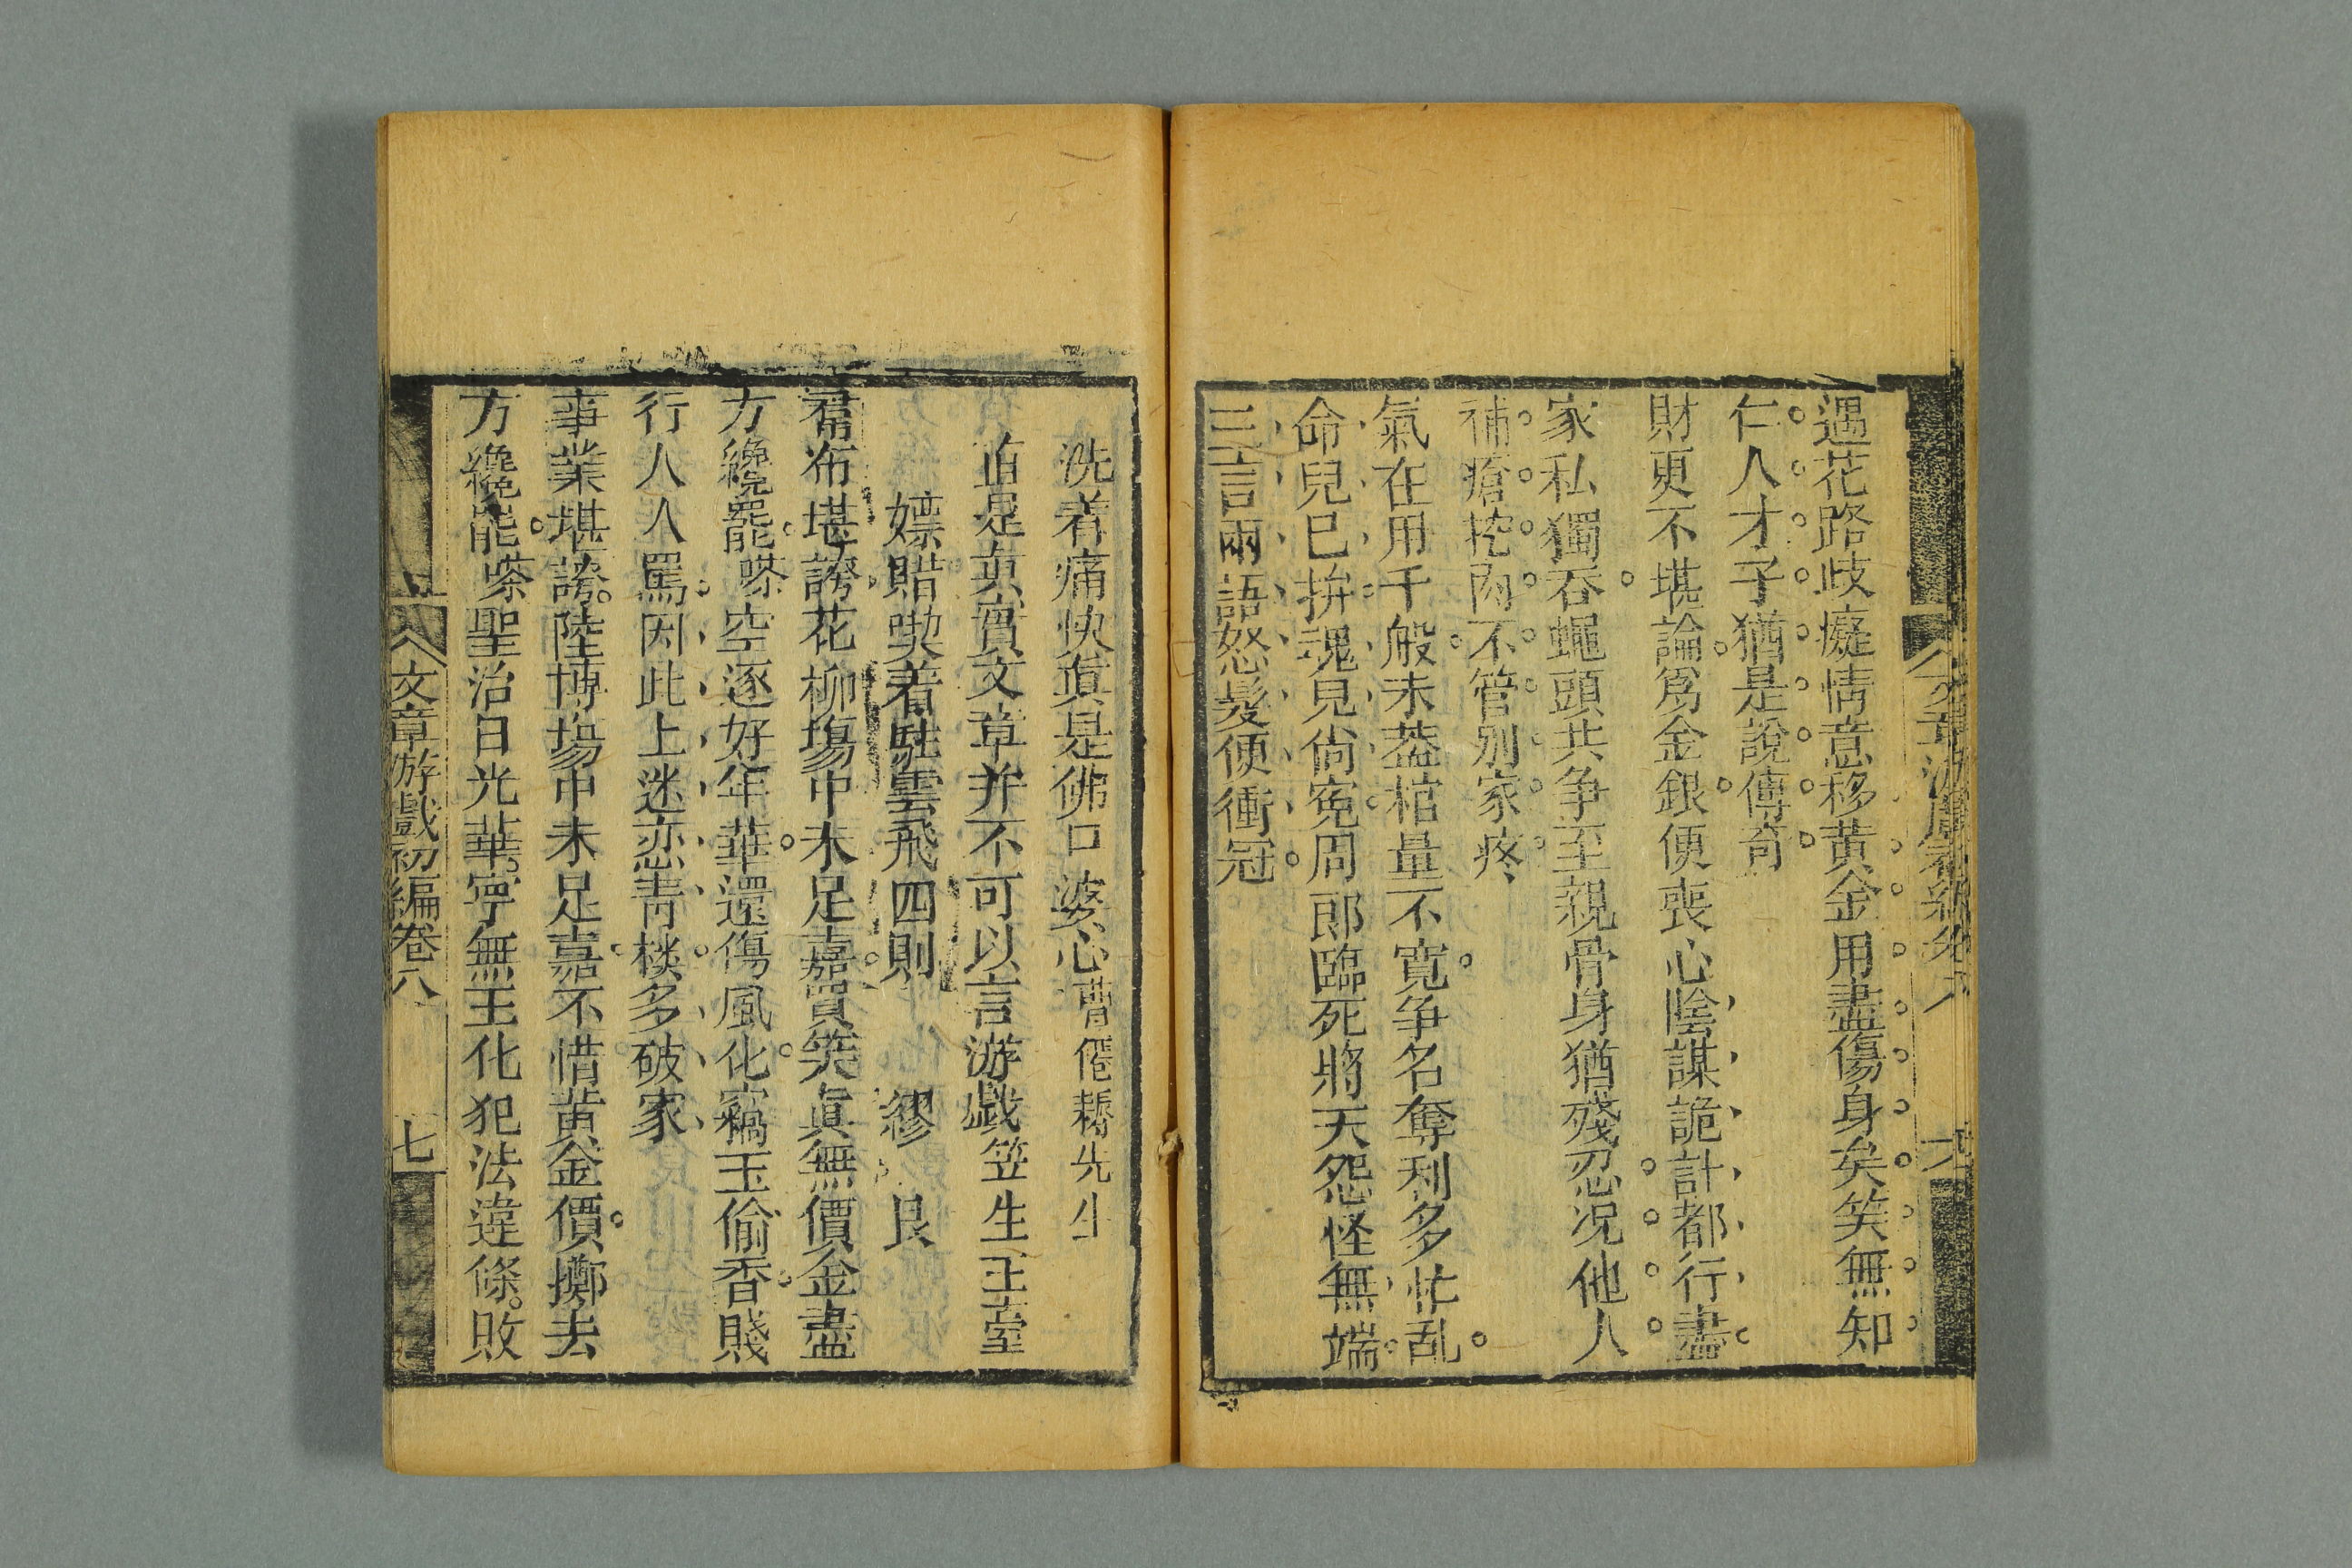 遇花路歧癡情意移黃金用盡傷身矣笑無知
仁人才子猶是說傳奇
財更不堪論爲金銀便喪心陰謀詭計都行盡
家私獨吞蠅頭共争至親骨身猶殘忍况他人
補瘡挖肉不管别家疼
氣在用千般未葢棺量不寬争名奪利多忙乱
命兒巳拚魂兒尙寃周郎臨死將天怨怪無端
三言兩語怒髮便衝冠
洗着痛快真是佛口婆心曹僊耨先生
直是真實文章并不可以言游戲笠生王臺
嫖賭喫着駐雲飛四則 繆艮
着布堪誇花柳塲中未足嘉買笑眞無價金盡
方纔罷嗏空逐好年華還傷風化竊玉偷香賤
行人人罵因此上迷恋靑樓多破家
事業堪誇陸博塲中未足嘉不惜黄金價擲去
方纔能嗏聖治日光華寧無王化犯法違條敗
文章游戲初編卷八
七